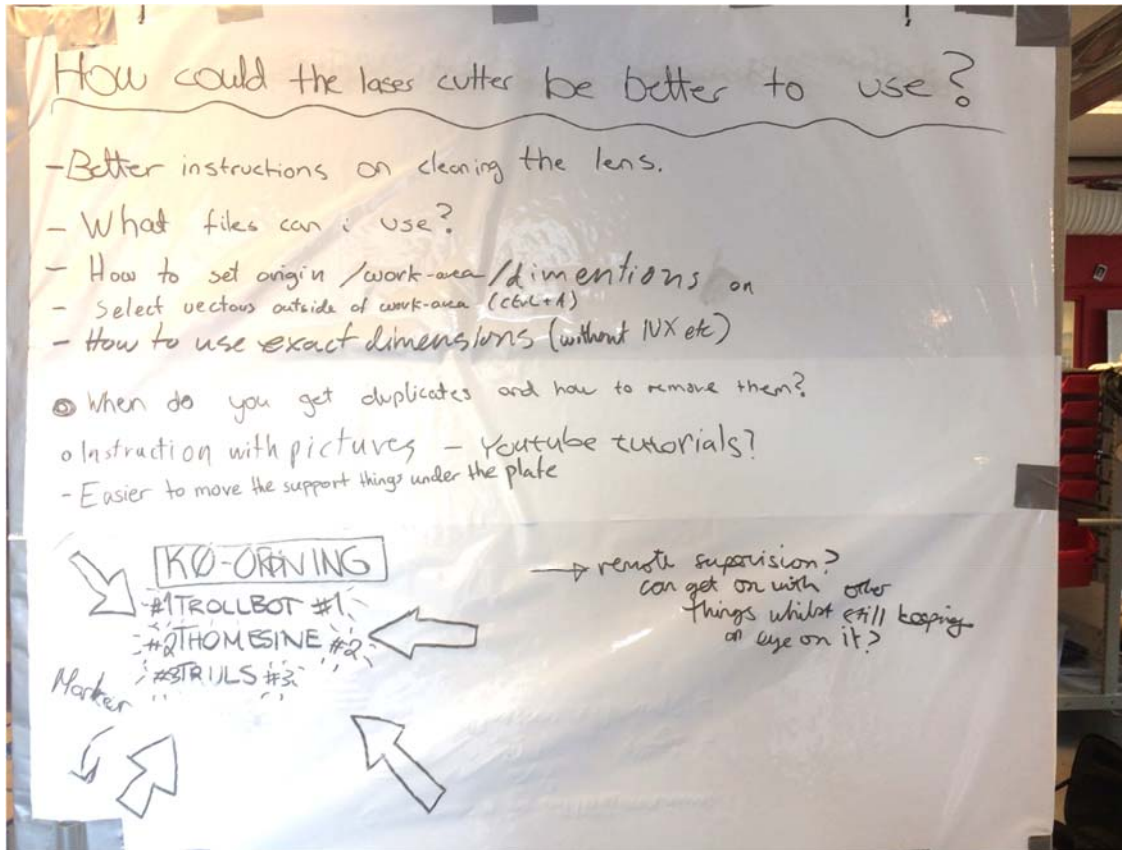 How could the laser cutter be better to use?
- Better instructions on cleaning the lens.
- What files can i use?
- How to set origin /work-area/dimentions on
- Select vectors outside of work-area (ctrl+A)
- How to use exact dimensions (without NX etc)
When do you get duplicates and how to remove them?
o Instruction with pictures - Youtube tutorials?
- Easier to move the support things under the plate
KØ-ORDNING
#1 TROLLBOT #1
#2 THOMESINE #2
#3 TRULS #3
Marker
→ remote supervision?
can get on with other
things whilst still keeping
an eye on it?